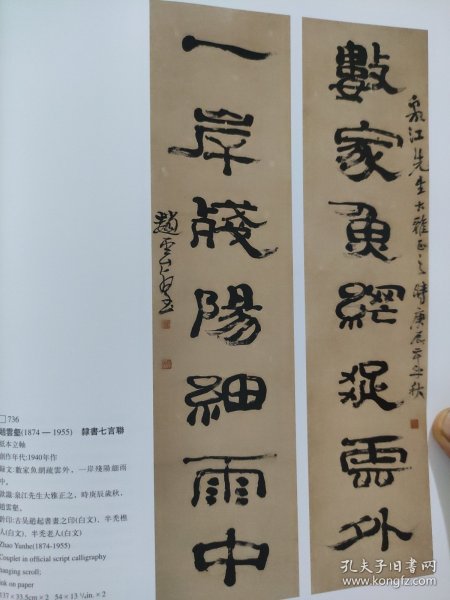 數家魚網疏雲外
泉江先生大雅正之時庚辰年秋
一岸殘陽細雨中
趙雲壑
□736
趙雲壑(1874 — 1955) 隸書七言聯
紙本立軸
創作年代:1940年作
錄文:數家魚網疏雲外,一岸殘陽細雨
中。
款識:泉江先生大雅正之,時庚辰歲秋,
趙雲壑。
鈐印:古吳趙起書畫之印(白文)、半禿樵
人(白文)、半禿老人(白文)
Zhao Yunhe(1874-1955)
Couplet in official script calligraphy
hanging scroll;
ink on paper
137×33.5cm×2 54×13 ¼in.×2
孔夫子旧书网